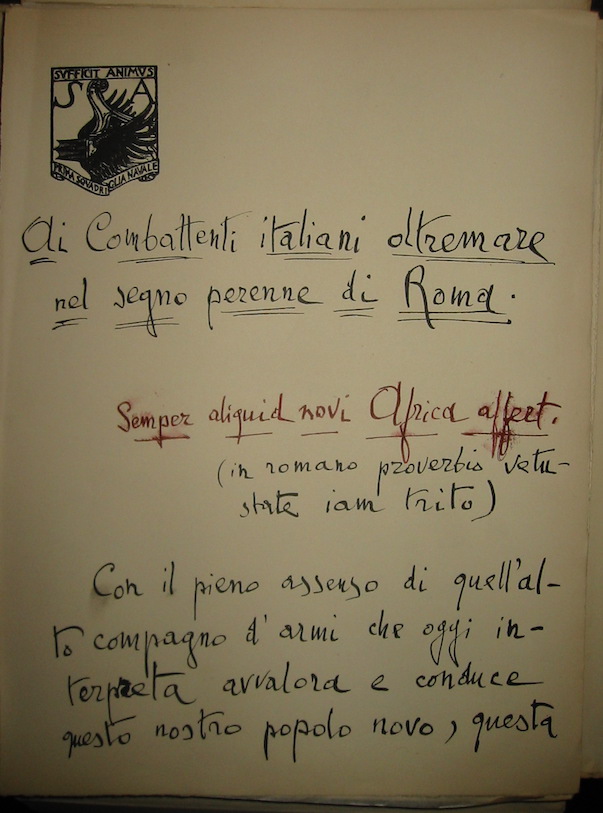 SVFFICIT ANIMVS
S A
PRIMA SQVADRIGLIA NAVALE
Ai Combattenti italiani oltremare
nel segno perenne di Roma.
Semper aliquid novi Africa affert.
(in romano proverbio vetu-
state iam trito)
Con il pieno assenso di quell'al-
to compagno d'armi che oggi in-
terpreta avvalora e conduce
questo nostro popolo novo, questa